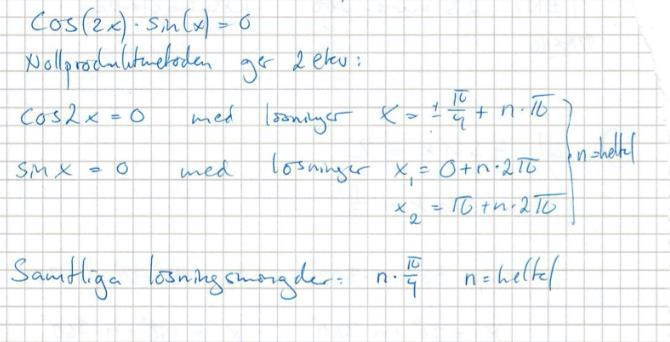 Cos(2x) · sin(x) = 0
Nollproduktmetoden ger 2 ekv:
Cos2x = 0 med lösningar x = ± π/4 + n·π
sin x = 0 med lösningar x₁ = 0 + n·2π
x₂ = π + n·2π
n = heltal
Samtliga lösningsmängder: n·π/4 n = heltal